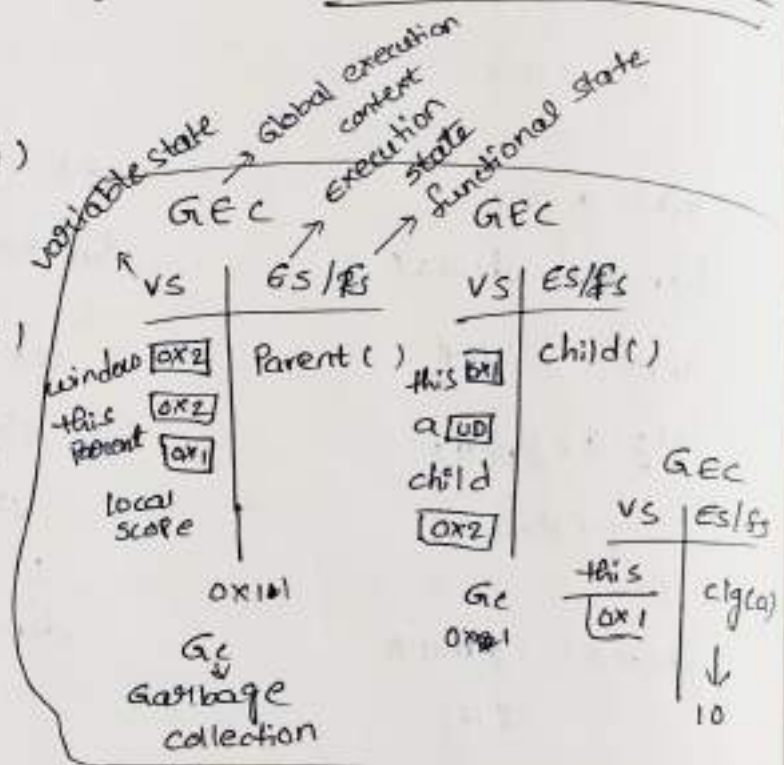 )
)
variable state
Global execution context
execution state
functional state
GEC
VS | ES/fs
window 0x2
this 0x2
Parent 0x1
local scope
Parent ( )
GC
Garbage
collection
GEC
VS | ES/fs
this 0x1
a UD
child
0x2
child( )
GC
GEC
VS | ES/fs
this
0x1
clg(a)
10